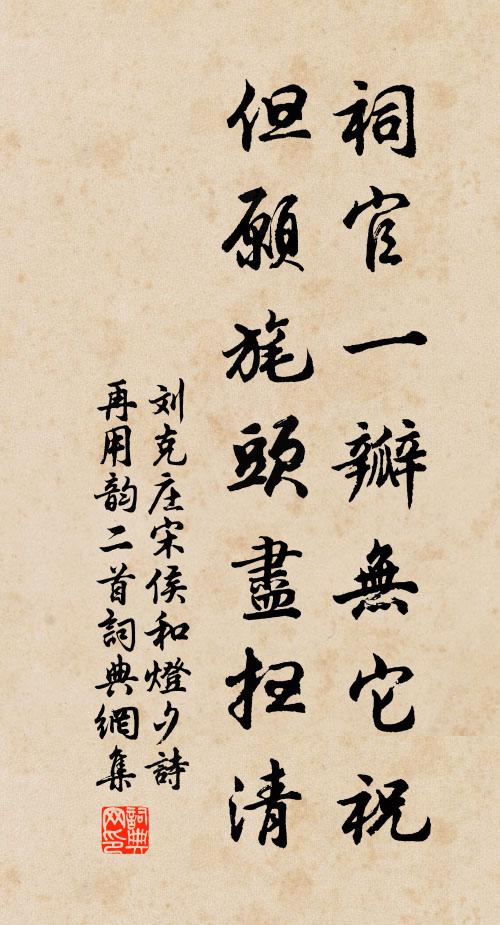 祠官一瓣無它祝
但願旄頭盡扫清
刘克庄宋侯和燈夕詩
再用韵二首詞典網集
詞典
网印